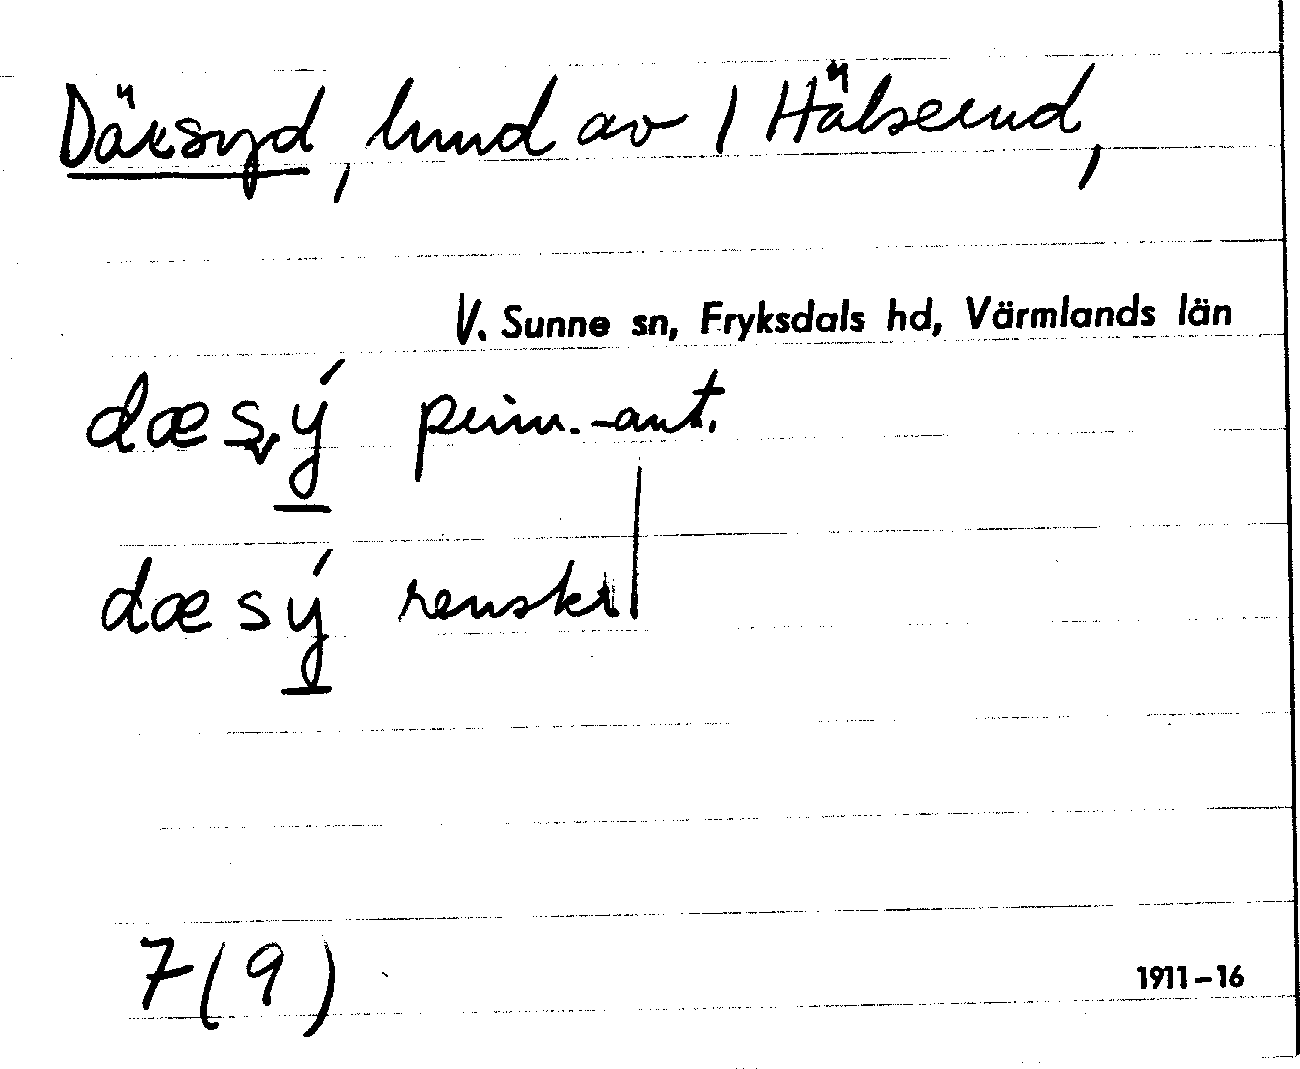 Därsyd, hmd av 1 Hälserud,
V. Sunne sn, Fryksdals hd, Värmlands län
dæsý prim.-ant.
dæsý renskr
7(9)
1911–16